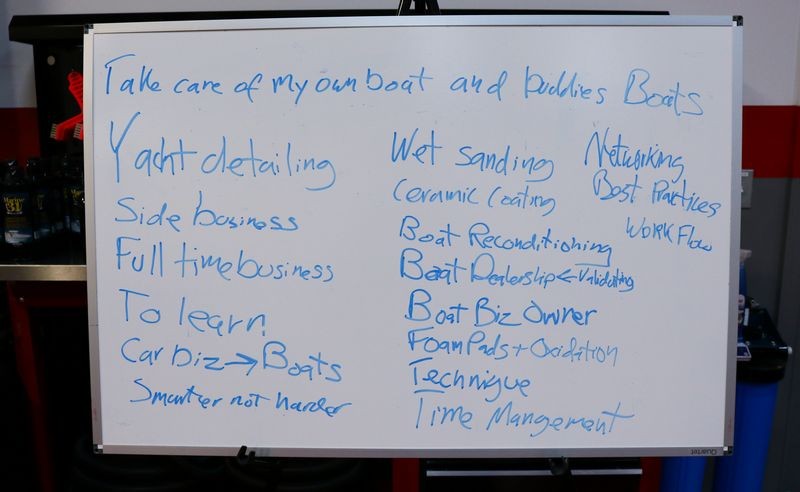 Take care of my own boat and buddies Boats
Yacht detailing
Side business
Full time business
To learn
Car biz → Boats
Smarter not harder
Wet sanding
Ceramic Coating
Boat Reconditioning
Boat Dealership ← Validating
Boat Biz Owner
Foam Pads + Oxidation
Technique
Time Mangement
Networking
Best Practices
Work Flow
Quartet